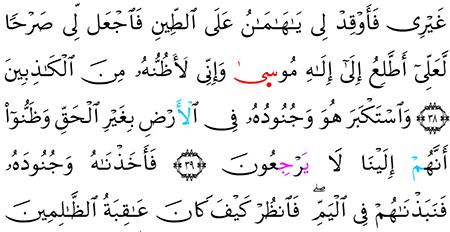 غَيْرِى فَأَوْقِدْ لِى يَـٰهَـٰمَـٰنُ عَلَى ٱلطِّينِ فَٱجْعَل لِّى صَرْحًا
لَّعَلِّىٓ أَطَّلِعُ إِلَىٰٓ إِلَـٰهِ مُوسىٰ وَإِنِّى لَأَظُنُّهُۥ مِنَ ٱلْكَـٰذِبِينَ
﴿٣٨﴾ وَٱسْتَكْبَرَ هُوَ وَجُنُودُهُۥ فِى ٱلْأَرْضِ بِغَيْرِ ٱلْحَقِّ وَظَنُّوٓا۟
أَنَّهُمْ إِلَيْنَا لَا يَرْجِعُونَ ﴿٣٩﴾ فَأَخَذْنَـٰهُ وَجُنُودَهُۥ
فَنَبَذْنَـٰهُمْ فِى ٱلْيَمِّ ۖ فَٱنظُرْ كَيْفَ كَانَ عَـٰقِبَةُ ٱلظَّـٰلِمِينَ